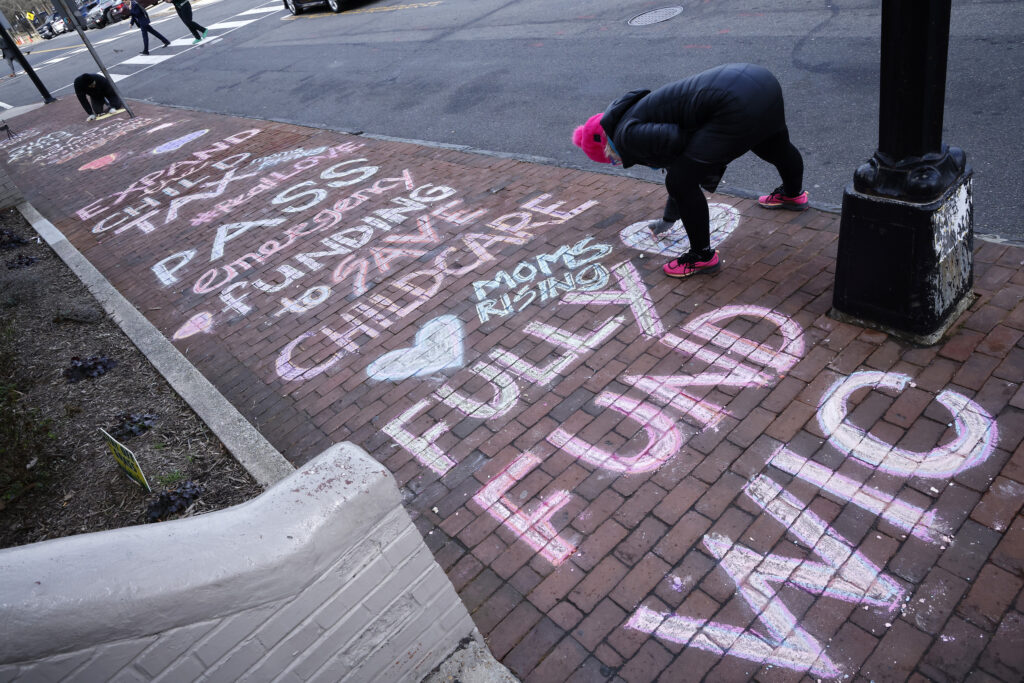 EXPAND
CHILD
TAX
#RealLOVE
PASS
emergency
FUNDING
to SAVE
CHILDCARE
MOMS
RISING
FULLY
FUND
WIC